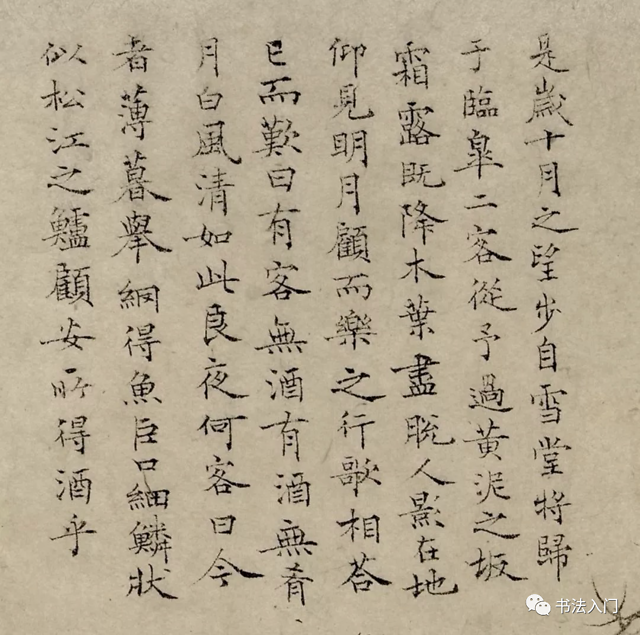 是歲十月之望步自雪堂將歸
于臨皐二客從予過黃泥之坂
霜露既降木葉盡脫人影在地
仰見明月顧而樂之行歌相荅
已而歎曰有客無酒有酒無肴
月白風清如此良夜何客曰今
者薄暮舉網得魚巨口細鱗狀
似松江之鱸顧安所得酒乎
书法入门